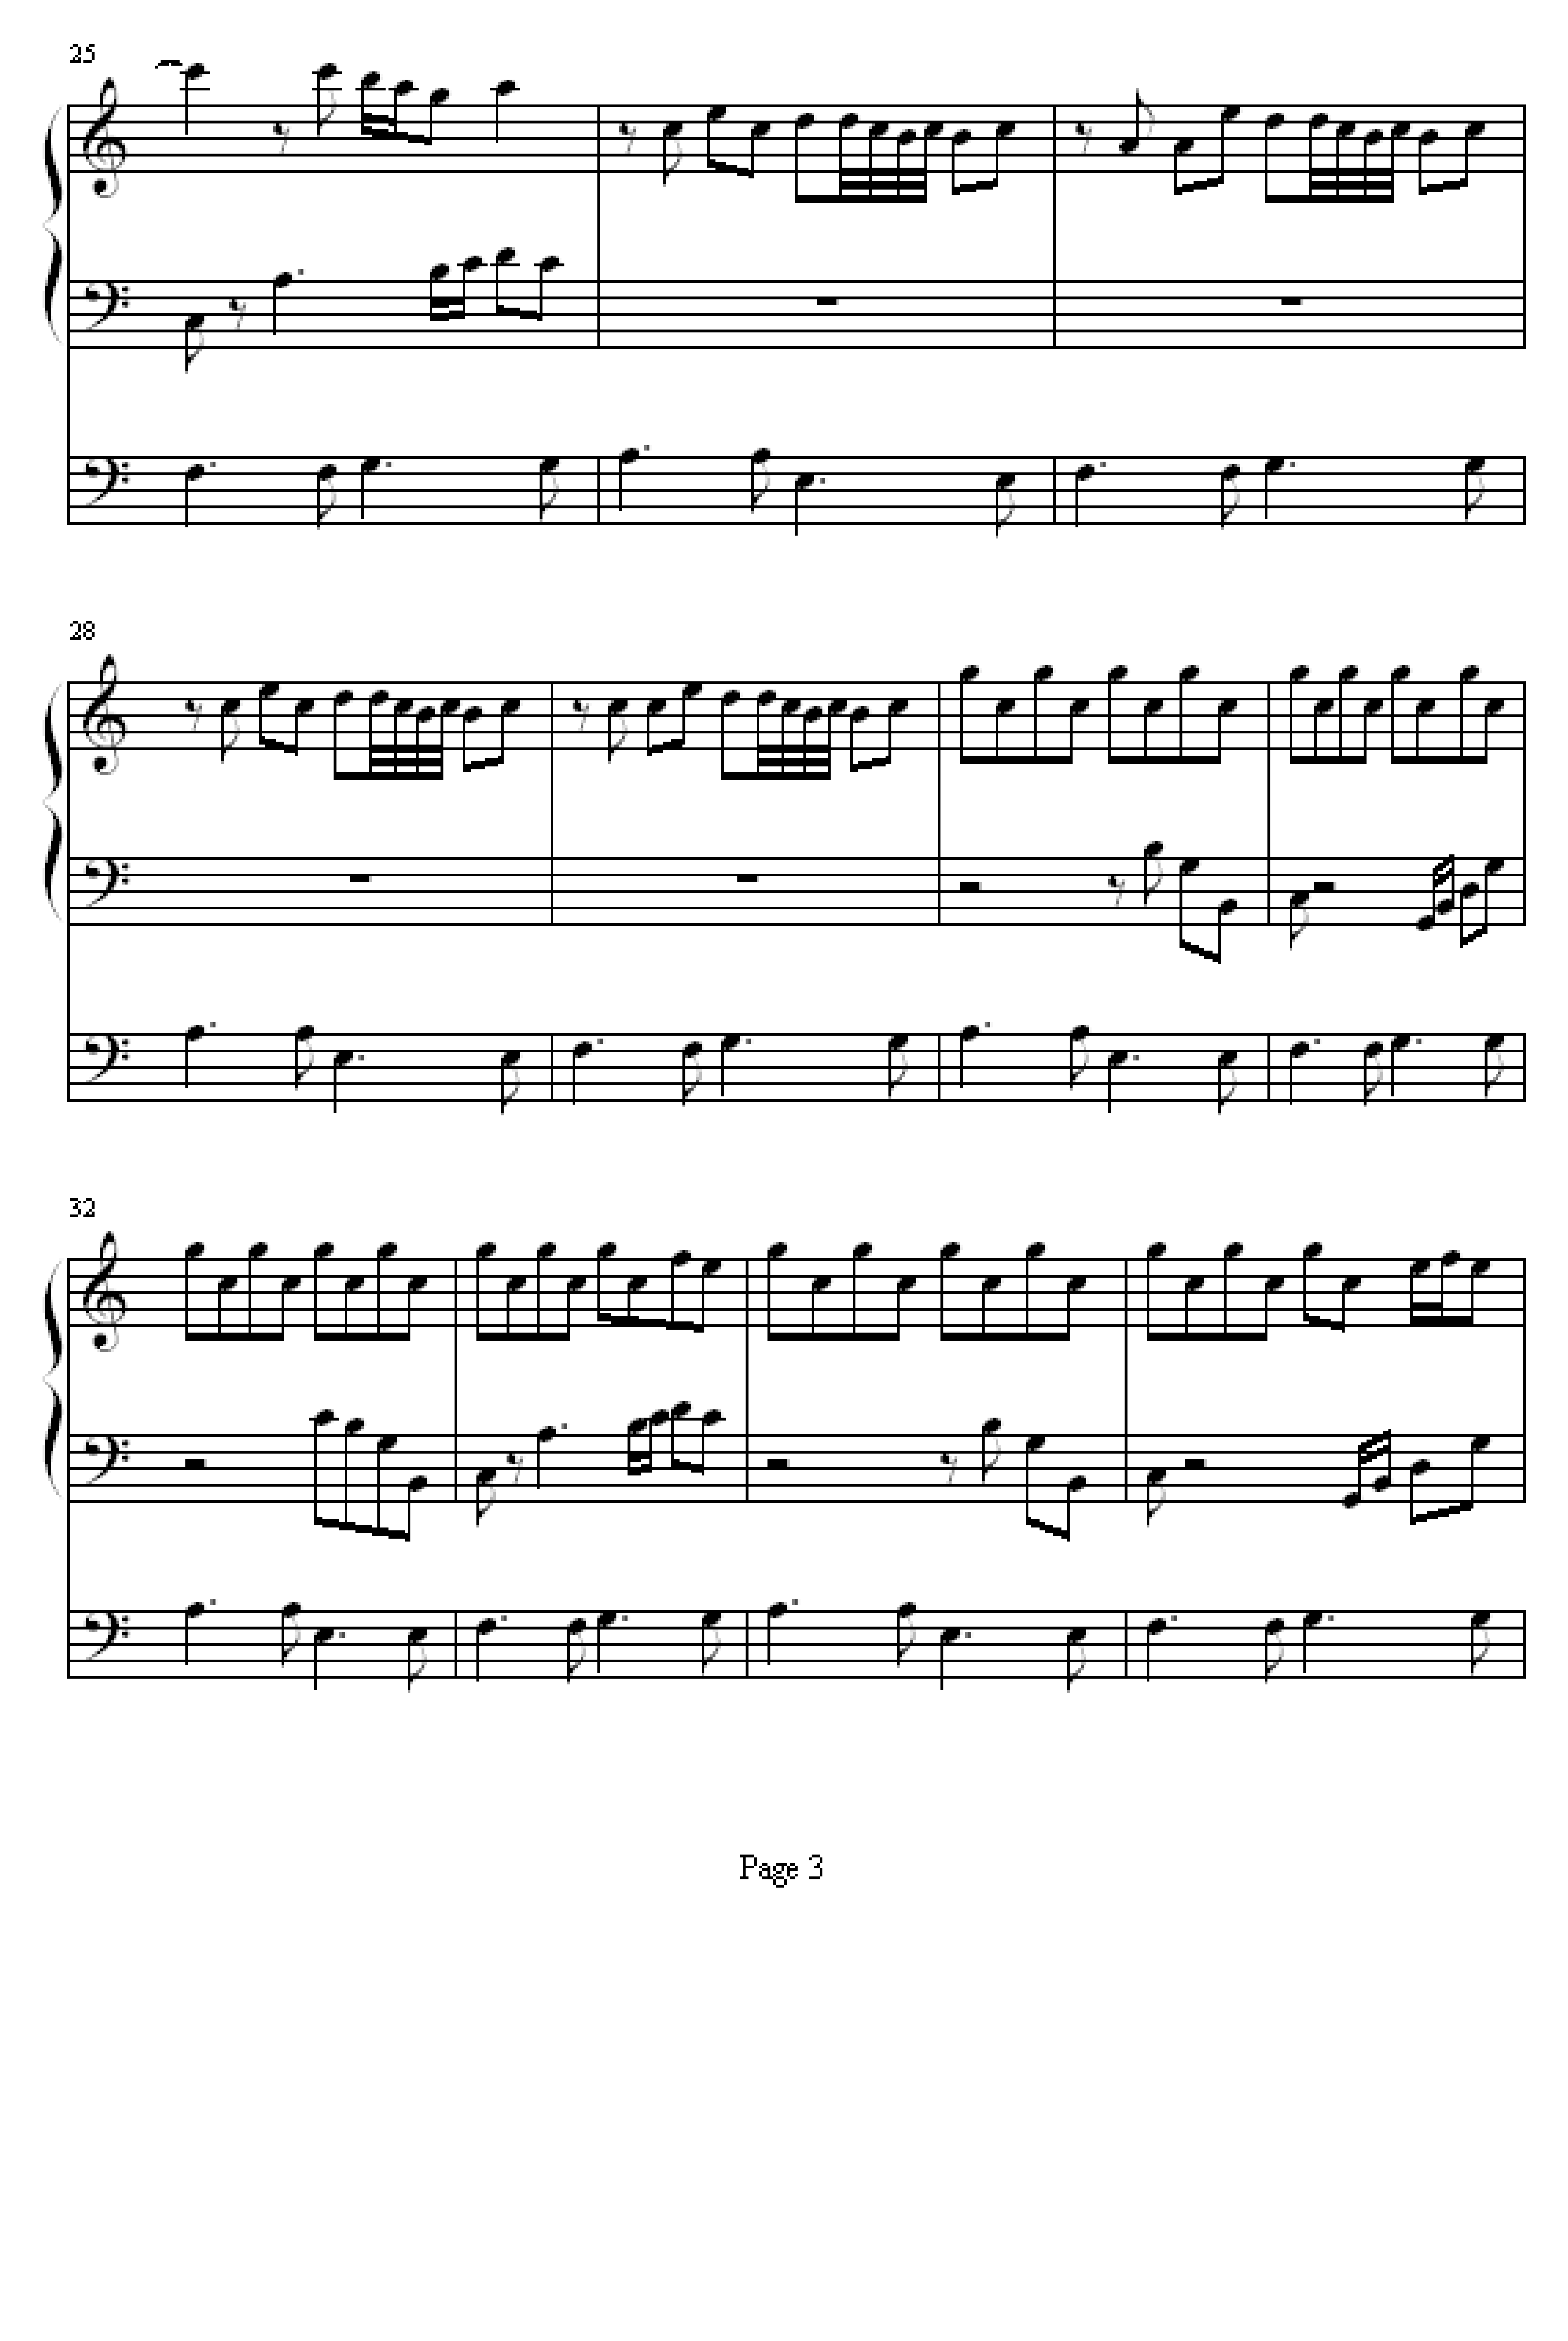 25
28
32
Page 3